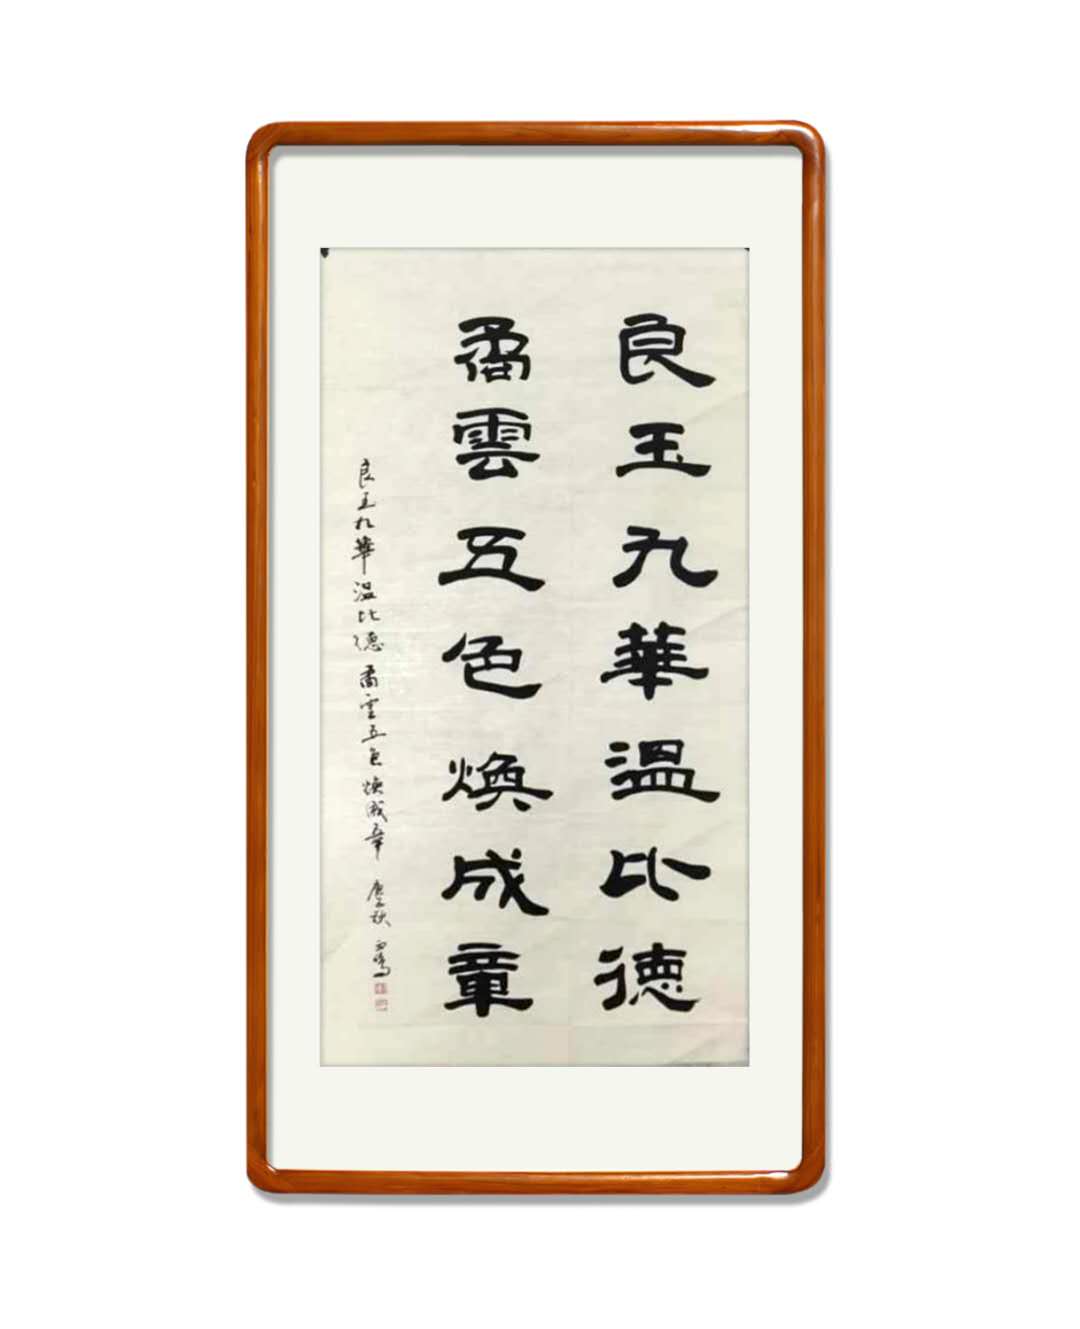 良玉九華溫比德
矞雲五色煥成章
良玉九華溫比德矞雲五色煥成章